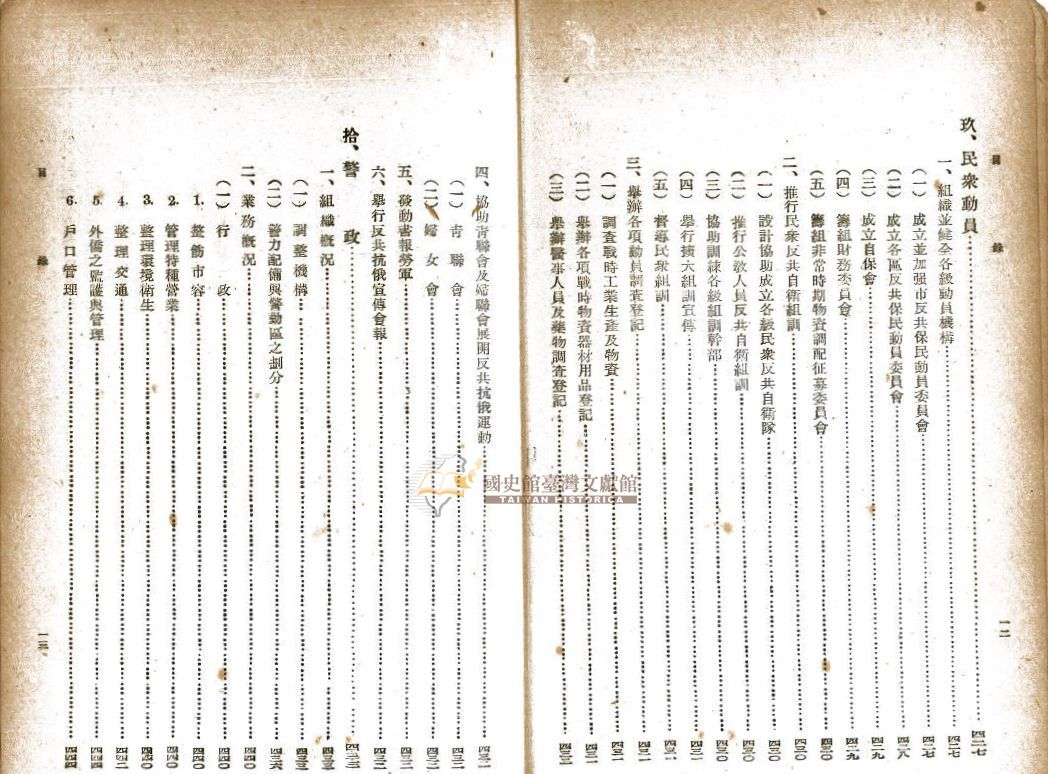 目 錄
玖、民衆動員……四二七
一、組織並健全各級動員機構……四二七
（一）成立並加强市反共保民動員委員會……四二七
（二）成立各區反共保民動員委員會……四二八
（三）成立自保會……四二九
（四）籌組財務委員會……四二九
（五）籌組非常時期物資調配征募委員會……四三〇
二、推行民衆反共自衛組訓……四三〇
（一）設計協助成立各級民衆反共自衛隊……四三〇
（二）推行公敎人員反共自衛組訓……四三〇
（三）協助訓練各級組訓幹部……四三〇
（四）舉行擴大組訓宣傳……四三一
（五）督導民衆組訓……四三一
三、舉辦各項動員調査登記……四三一
（一）調査戰時工業生產及物資……四三一
（二）舉辦各項戰時物資器材用品登記……四三一
（三）舉辦醫事人員及藥物調査登記……四三二
一二
四、協助靑聯會及婦聯會展開反共抗俄運動……四三二
（一）靑聯會……四三二
（二）婦女會……四三二
五、發動書報勞軍……四三二
六、舉行反共抗俄宣傳會報……四三二
拾、警 政……四三三
一、組織概況……四三三
（一）調整機構……四三三
（二）警力配備與警勤區之劃分……四三六
二、業務概況……四四〇
（一）行 政……四四〇
1. 整飭市容……四四〇
2. 管理特種營業……四四〇
3. 整理環境衛生……四四〇
4. 整理交通……四四二
5. 外僑之監護與管理……四四四
6. 戶口管理……四四四
目 錄
一三
國史館臺灣文獻館
TAIWAN HISTORICA